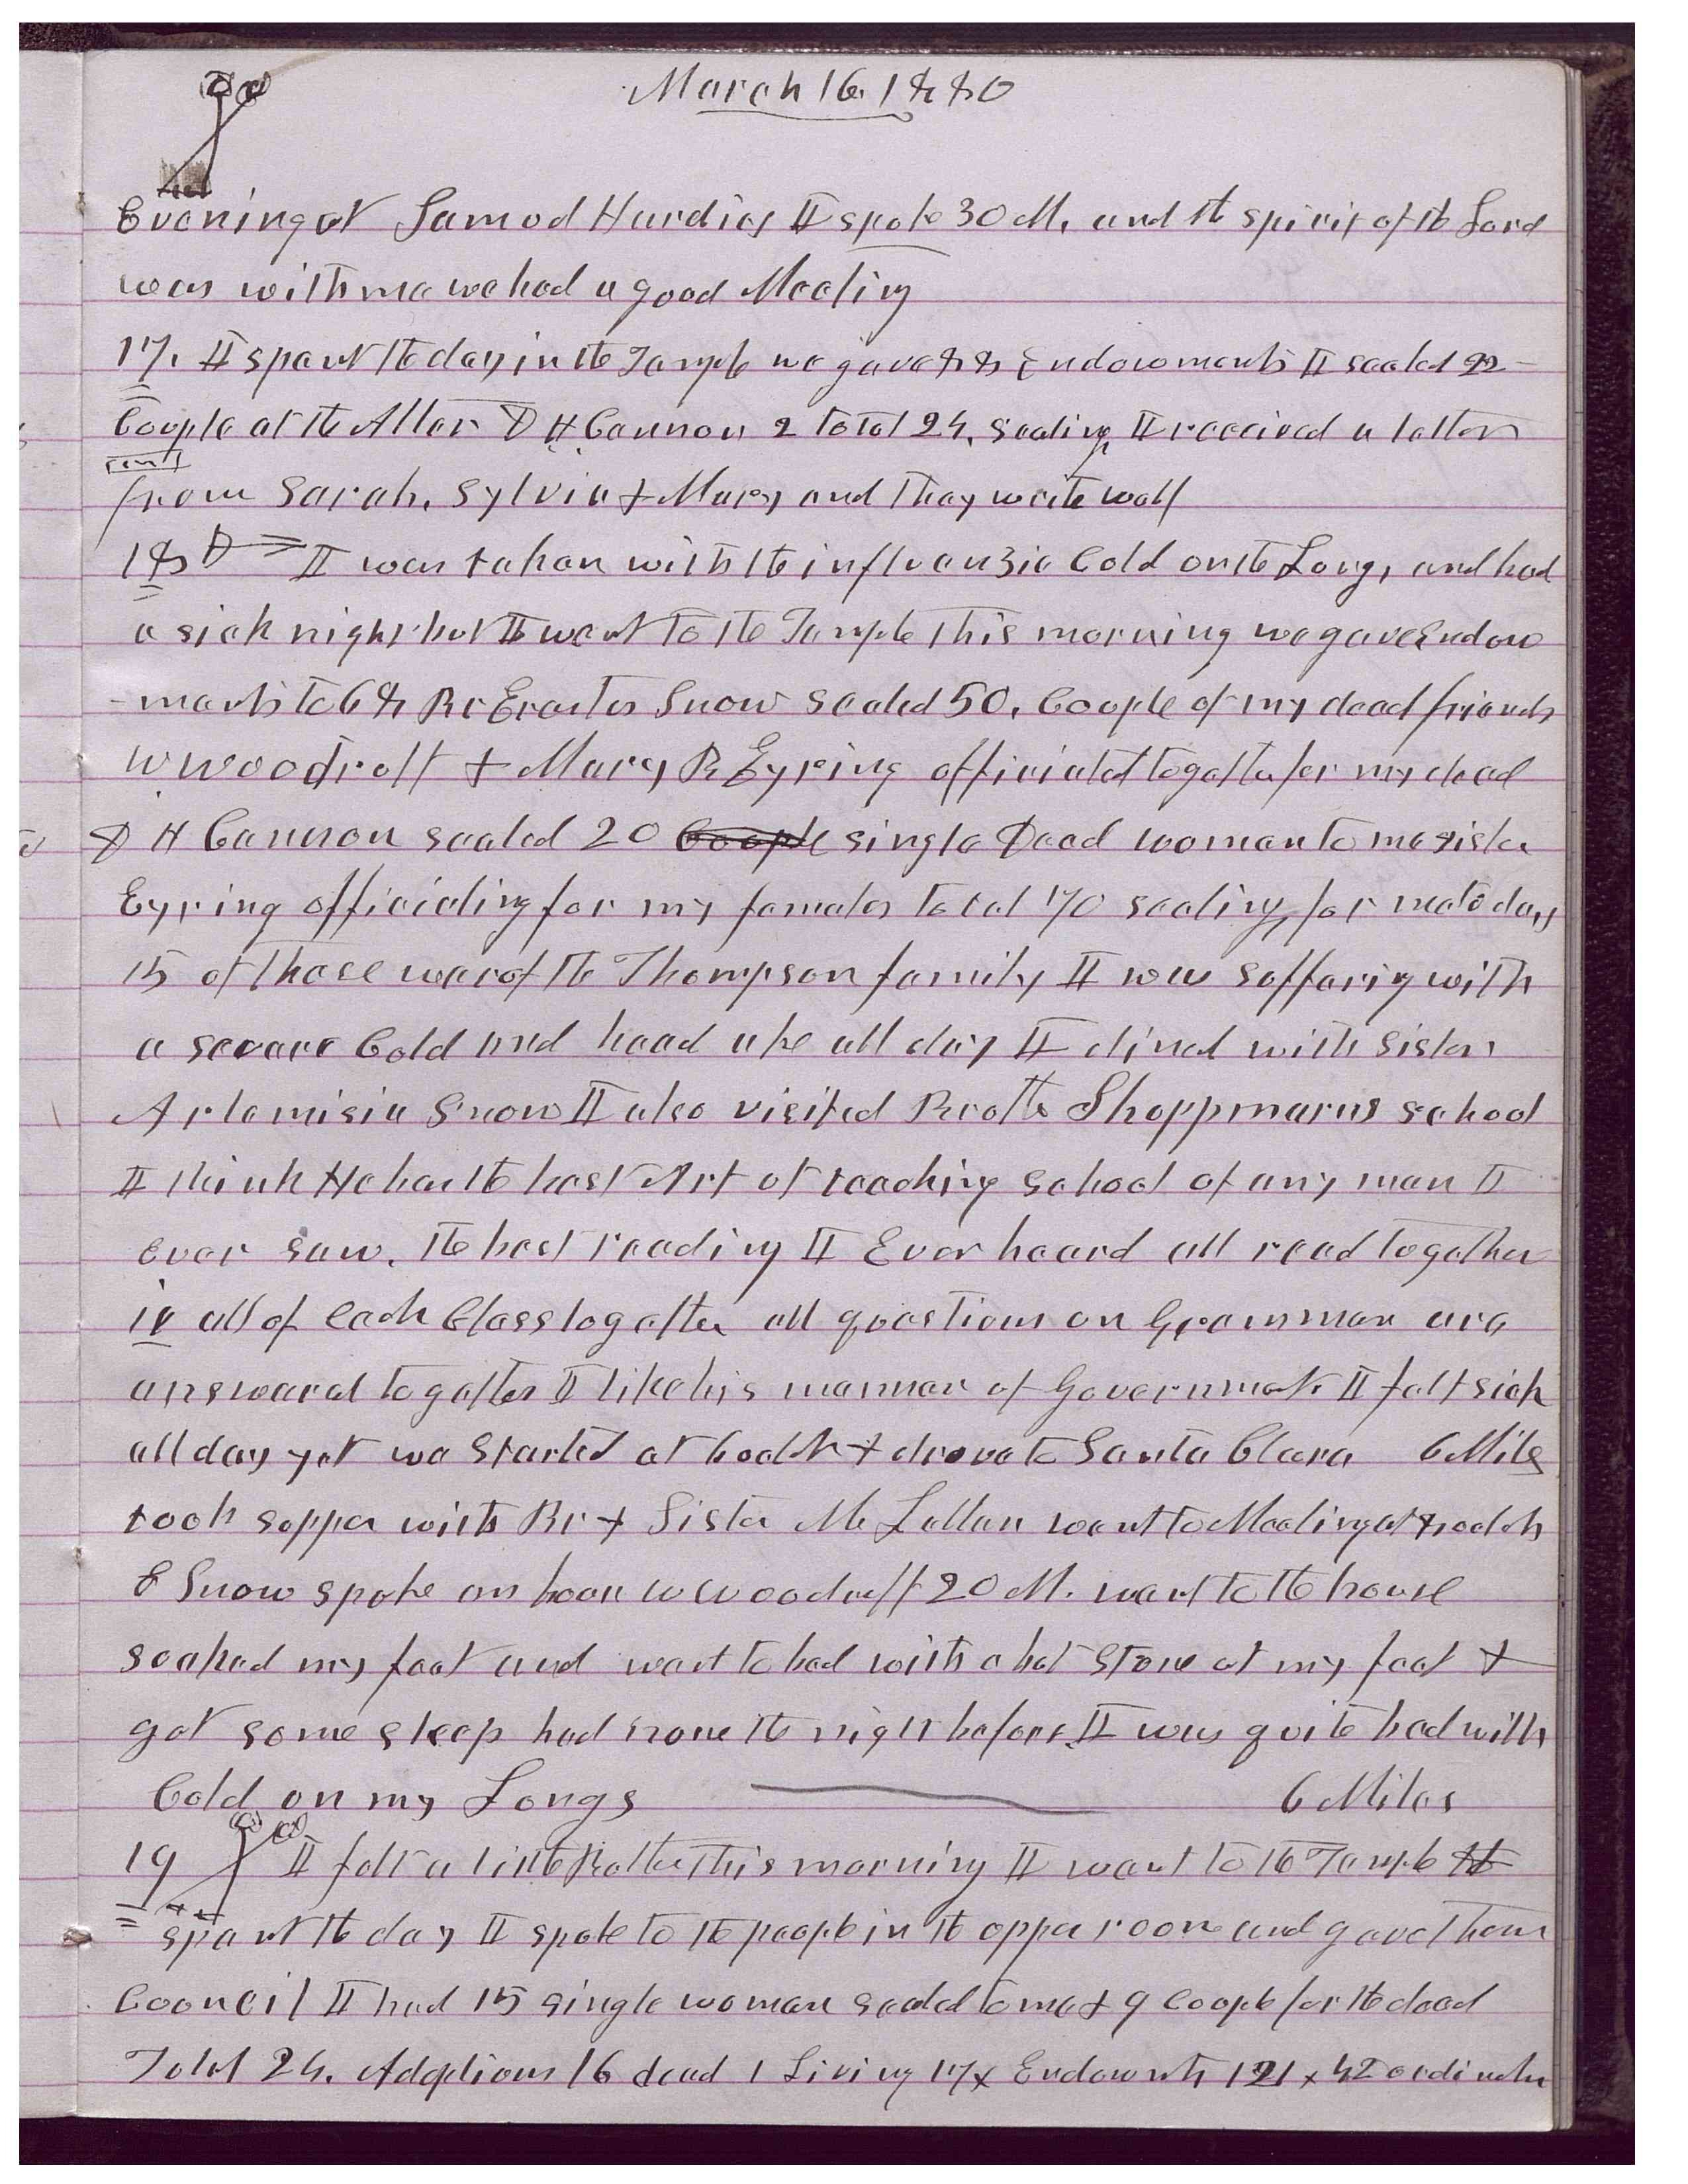 March 16, 1880
Evening at Samuel Hardies I spoke 30 M, and the spirit of the Lord
was with me we had a good Meeting
17, I spent the day in the Temple we gave 88 Endowments I sealed 22
Couple at the Altar D H Cannon 2 total 24, sealing I received a letter
from Sarah, Sylvia & Mary and they write well
18 I was taken with the influenzie Cold on the Lungs, and had
a sick night but I went to the Temple this morning we gave Endow
-ments to 68 Br Erastus Snow sealed 50, Couple of my dead friends
W Woodruff + Mary B Eyring officiated together for my dead
D H Cannon sealed 20 Couple single Dead woman to me sister
Eyring officiding for my females total 70 sealing, for me to day
15 of those were of the Thompson family I was suffering with
a severe Cold and head ake all day I dined with sister
Artemisia Snow I also visited Brother Shoppmanns school
I think He has the best Art of teaching school of any man I
ever saw, the best reading I Ever heard all read together
ie all of Each Class together all questions on Grammar are
answered together I like his manner of Government I felt sick
all day yet we started at 6 oclok + drove to Santa Clara 6 Miles
took supper with Br + Sister McLellan went to Meeting at 8 oclok
E Snow spoke an hour W Woodruff 20 M. went to the house
soaked my feet and went to bed with a hot Stone at my feet +
got some sleep had none the night before, I was quite bad with
Cold on my Lungs 6 Miles
19 I felt a little Better this morning I went to the Temple &
spent the day I spoke to the people in the upper room and gave them
Council I had 15 single woman sealed to me + 9 Couple for the dead
Total 24. Adoptions 16 dead 1 Living 17 x Endowmts 121 x 42 ordinatn